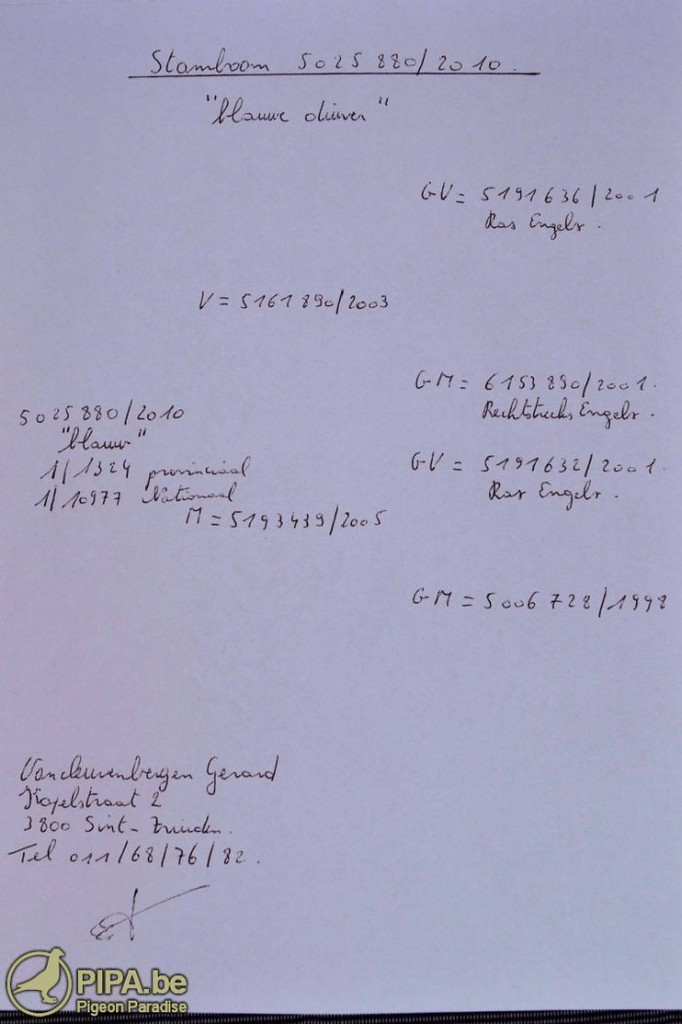 Stamboom 5025880/2010.
"blauwe duiver"
GV = 5191636/2001
Ras Engels.
V = 5161890/2003
GM = 6153890/2001.
Rechtstreeks Engels.
5025880/2010
"blauw"
1/1324 provinciaal
1/10977 Nationaal
GV = 5191632/2001.
Ras Engels.
M = 5193439/2005
GM = 5006728/1998
Gerard
2
3800 Sint-Truiden.
Tel 011/68/76/82.
PIPA.be
Pigeon Paradise